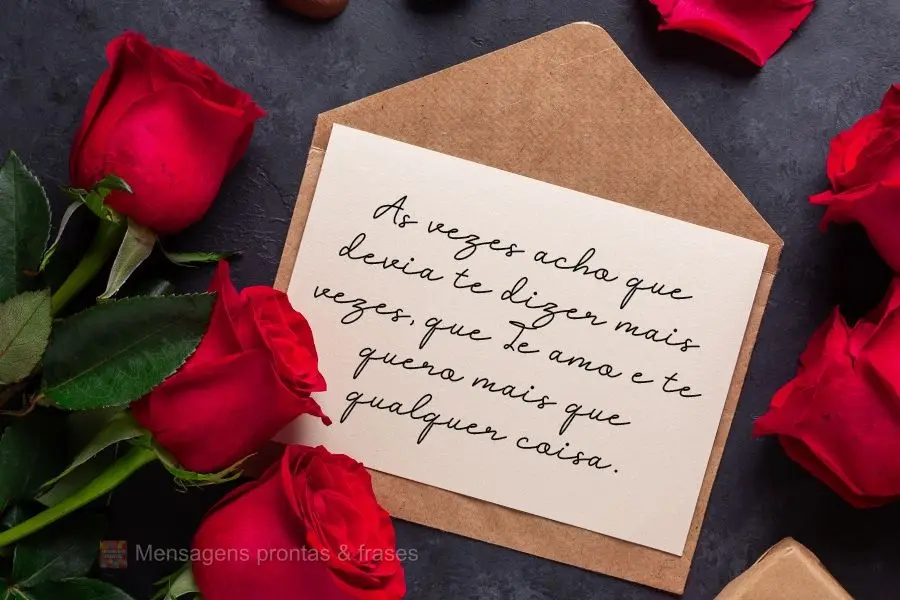 As vezes acho que
devia te dizer mais
vezes, que Te amo e te
quero mais que
qualquer coisa.
Mensagens prontas & frases